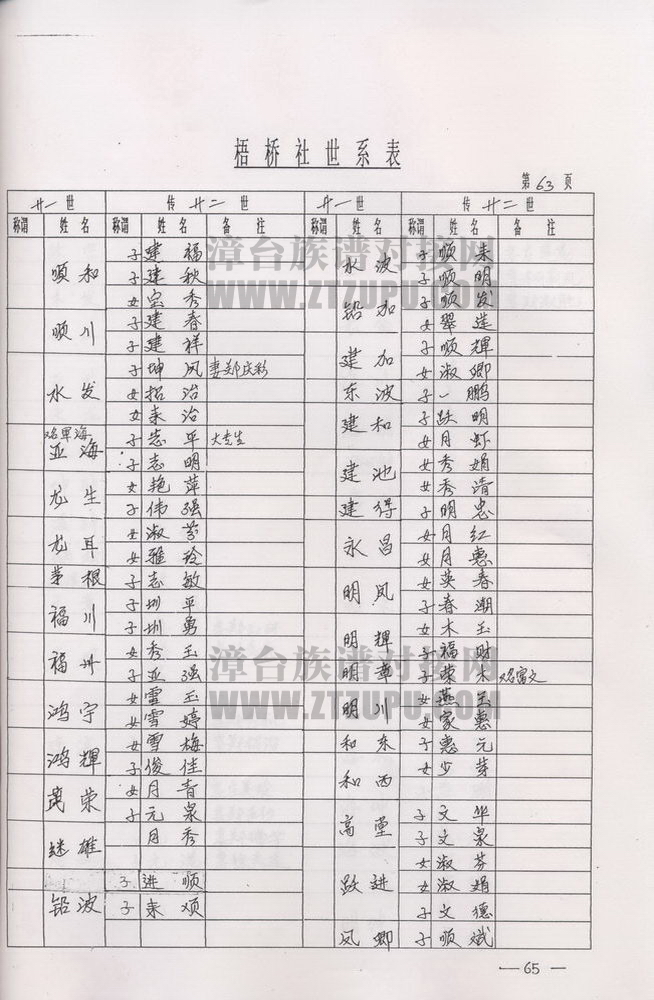 梧桥社世系表
第63页
廿一世 传廿二世 廿一世 传廿二世
称谓 姓名 称谓 姓名 备注 称谓 姓名 称谓 姓名 备注
顺和 子 建福
子 建秋
女 宝秀
顺川 子 建春
子 建祥
水发 子 坤凤 妻郑庆彩
女 招治
女 来治
亚海 子 志平 大学生
子 志明
龙生 女 艳萍
子 伟强
龙耳 女 淑芬
女 雅玲
茅根 子 志敏
福川 子 圳平
子 圳勇
福州 女 秀玉
子 亚强
鸿宇 女 雪玉
女 雪婷
鸿輝 女 雪梅
子 俊佳
茂荣 女 月青
子 元泉
继雄 月秀
子 进顺
铅波 子 来顺
水波 子 顺来
子 顺明
铅加 子 顺发
女 翠莲
建加 子 顺輝
女 淑卿
东波 子 一鹏
建和 子 跃明
女 月虾
建池 女 秀娟
女 秀清
建得 子 明忠
永昌 女 月红
女 月惠
明凤 女 英春
子 春潮
明輝 女 木玉
子 福财
明章 子 荣木 又名富文
明川 女 燕玉
女 家惠
和东 子 惠元
和西 女 少芽
高堂 子 文华
子 文泉
女 淑芬
跃进 女 淑娟
子 文德
凤卿 子 顺斌
—65—
漳台族谱对接网
WWW.ZTZUPU.COM
漳台族谱对接网
WWW.ZTZUPU.COM